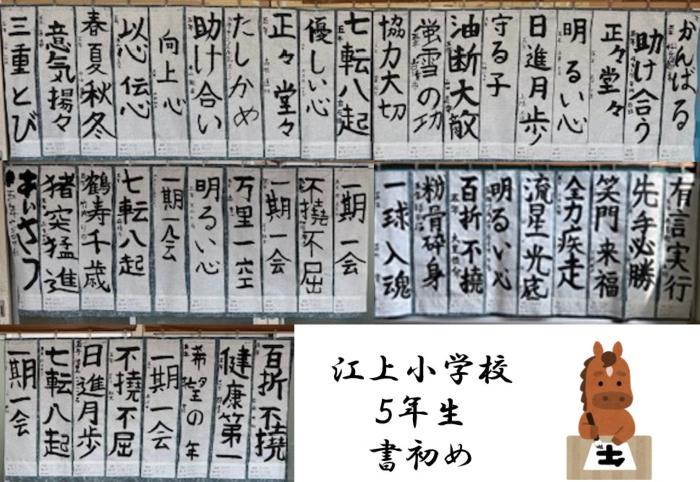 がんばる
助け合う
正々堂々
明るい心
日進月歩
守る子
油断大敵
蛍雪の功
協力大切
七転八起
優しい心
正々堂々
たしかめ
助け合い
向上心
以心伝心
春夏秋冬
意気揚々
三重とび
有言実行
先手必勝
笑門来福
全力疾走
流星光底
明るい心
百折不撓
粉骨砕身
一球入魂
一期一会
不撓不屈
一期一会
万里一空
明るい心
一期一会
七転八起
鶴寿千歳
猪突猛進
あいさつ
百折不撓
健康第一
希望の年
一期一会
不撓不屈
日進月歩
七転八起
一期一会
江上小学校
5年生
書初め